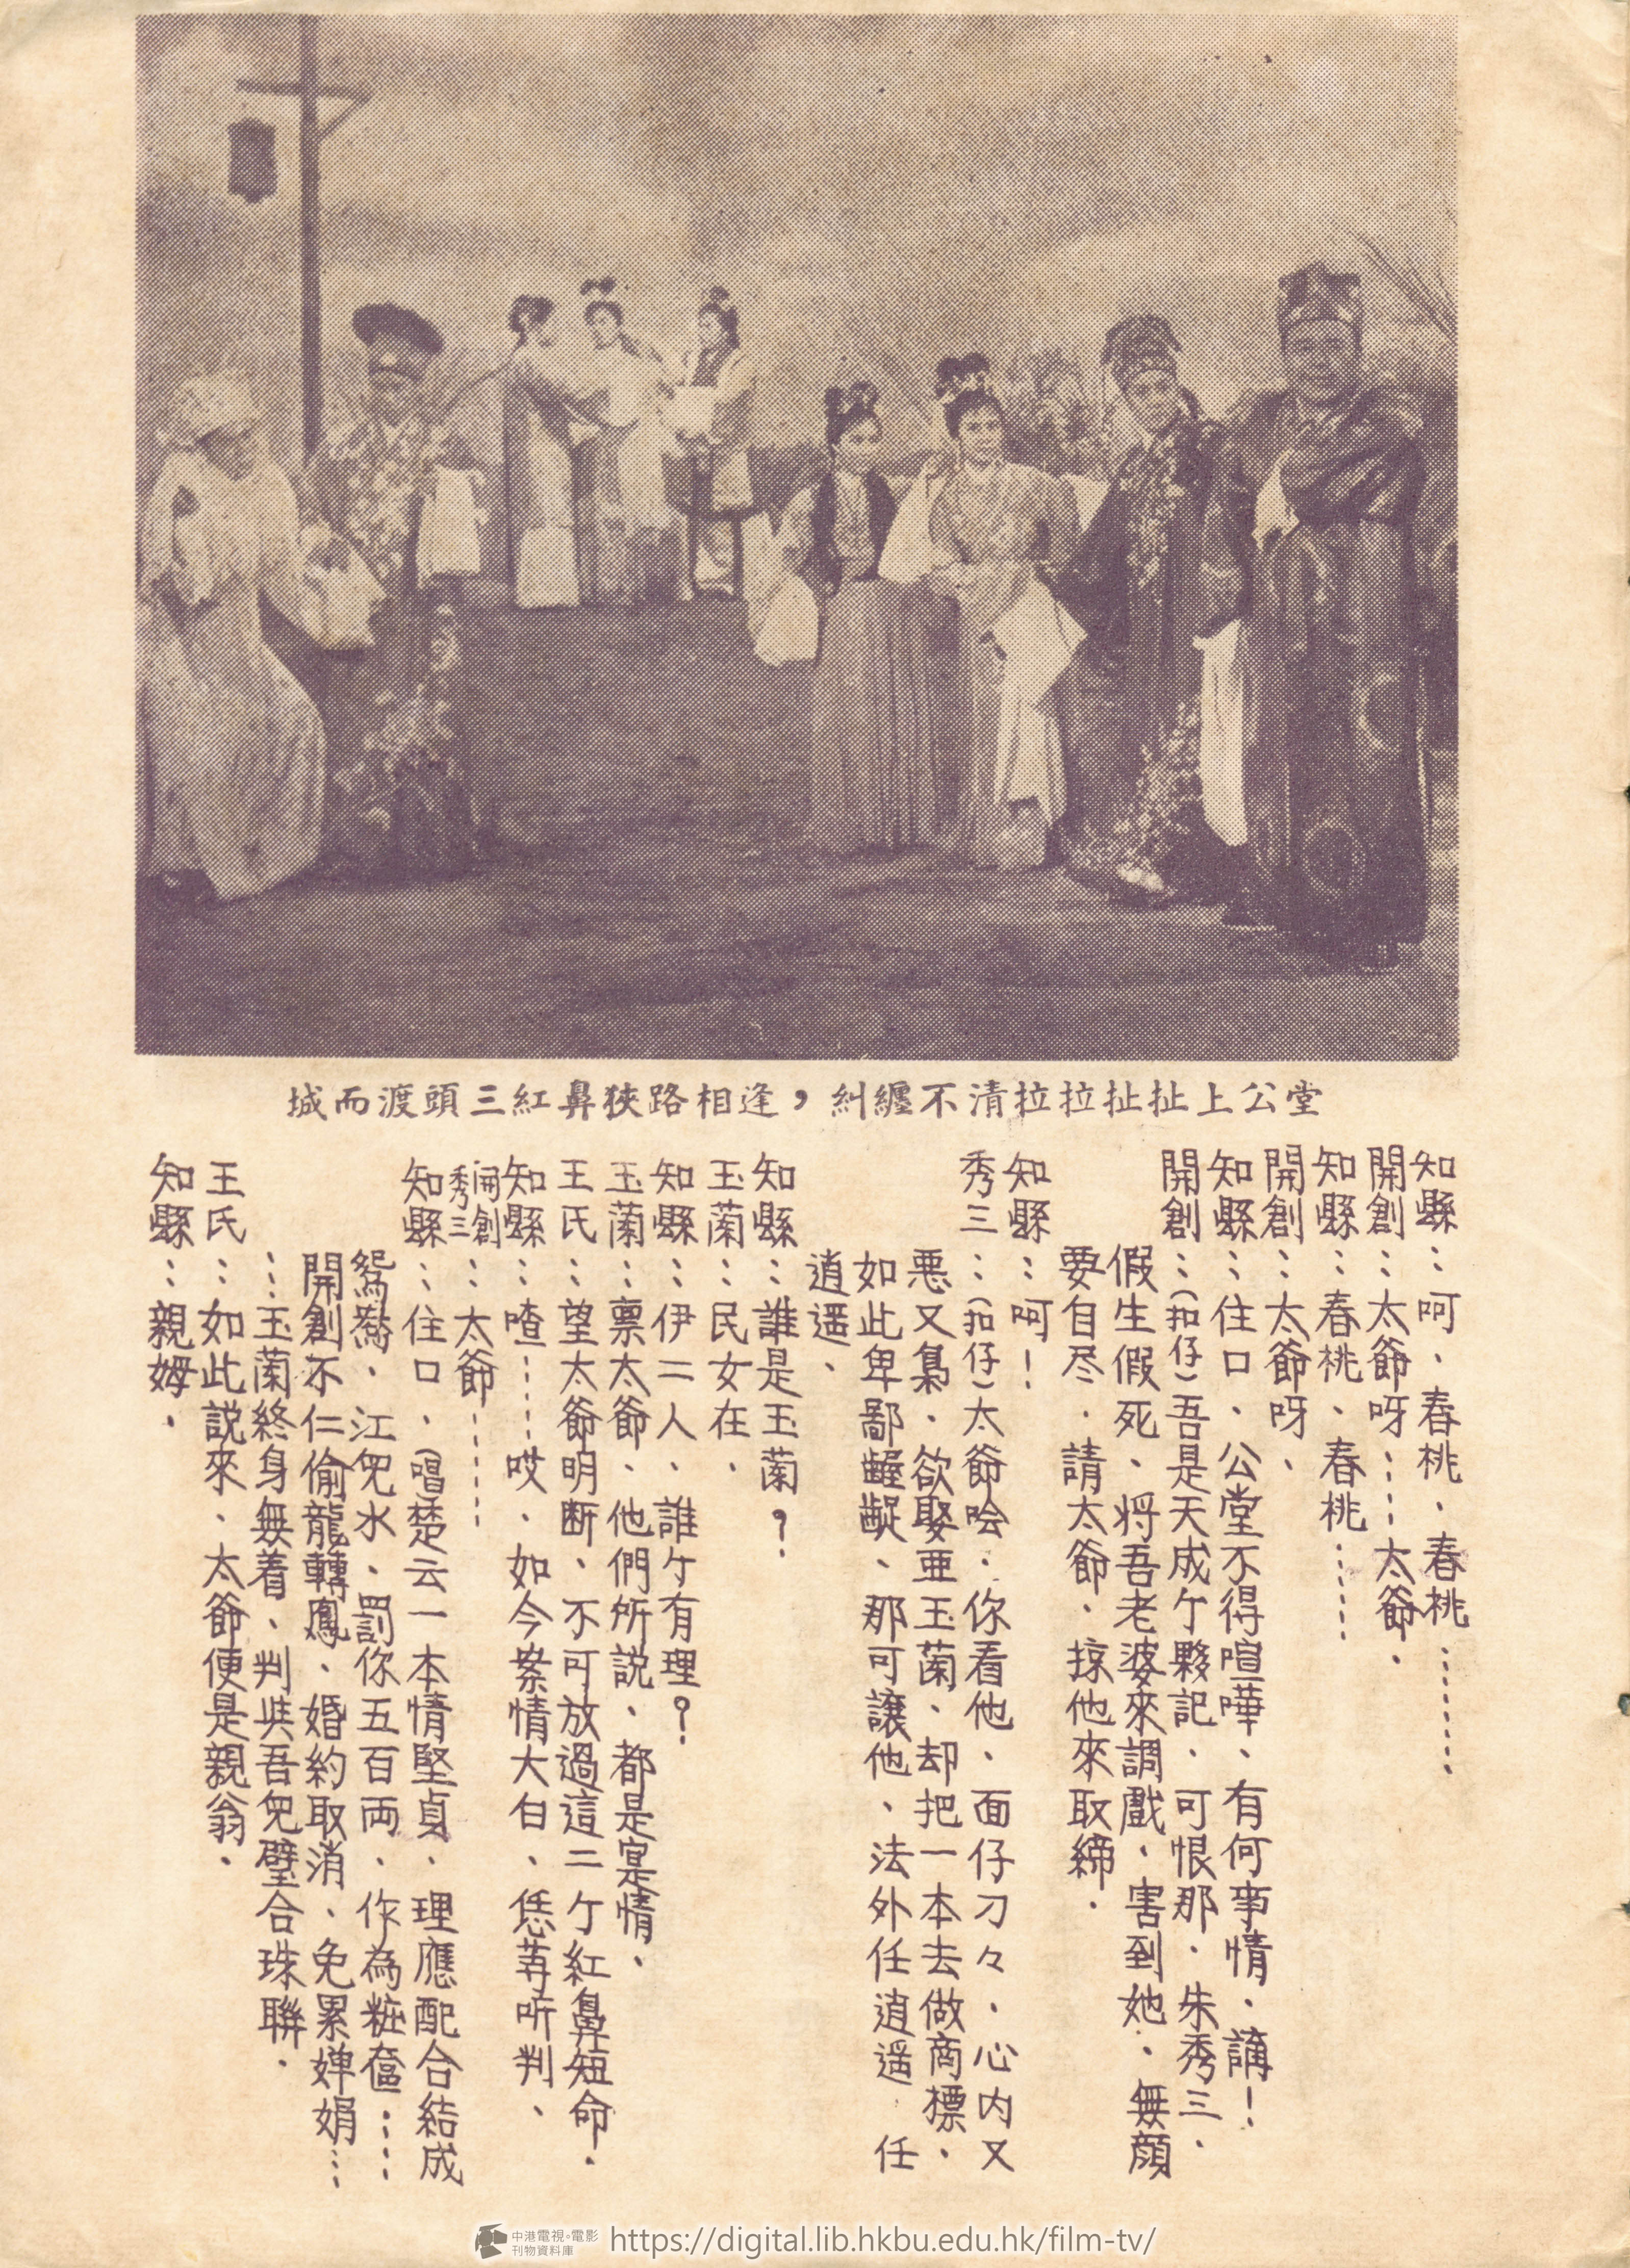 城而渡頭三紅鼻狹路相逢，糾纏不清拉拉扯扯上公堂
知縣：呵、春桃、春桃……
開創：太爺呀……太爺、
知縣：春桃、春桃……
開創：太爺呀、
知縣：住口、公堂不得喧嘩、有何事情、講！
開創：（扣仔）吾是天成亇夥記、可恨那、朱秀三、
假生假死、将吾老婆來調戲、害到她、無顔
要自尽、請太爺、掠他來取締、
知縣：呵！
秀三：（扣仔）太爺唅、你看他、面仔刁々、心内又
悪又梟、欲娶亜玉蘭、却把一本去做商標、
如此卑鄙齷齪、那可讓他、法外任逍遥、任
逍遥、
知縣：誰是玉蘭？
玉蘭：民女在、
知縣：伊二人、誰亇有理？
玉蘭：禀太爺、他們所説、都是寔情、
王氏：望太爺明断、不可放過這二亇紅鼻短命、
知縣：喳……哎、如今案情大白、恁苐听判、
開創
秀三：太爺……
知縣：住口、（唱）楚云一本情堅貞、理應配合結成
鴛鴦、江皃水、罰你五百両、作為粧奩……
開創不仁偷龍轉鳳、婚約取消、免累婵娟……
…玉蘭終身無着、判與吾皃璧合珠聯、
王氏：如此説來、太爺便是親翁、
知縣：親姆、
中港電視·電影
刊物資料庫
https://digital.lib.hkbu.edu.hk/film-tv/